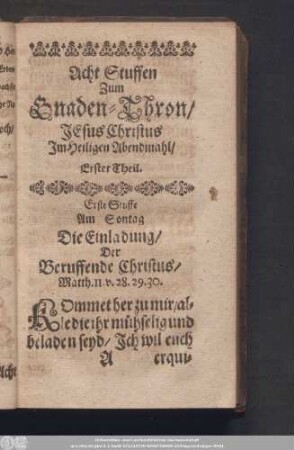 Acht Stuffen
Zum
Gnaden-Thron/
JEsus Christus
Im Heiligen Abendmahl/
Erster Theil.
Erste Stuffe
Am Sontag
Die Einladung/
Der
Beruffende Christus/
Matth. 11. v. 28. 29. 30.
KOmmet her zu mir/al-
le die ihr mühselig und
beladen seyd/ Ich wil euch
A erqui-